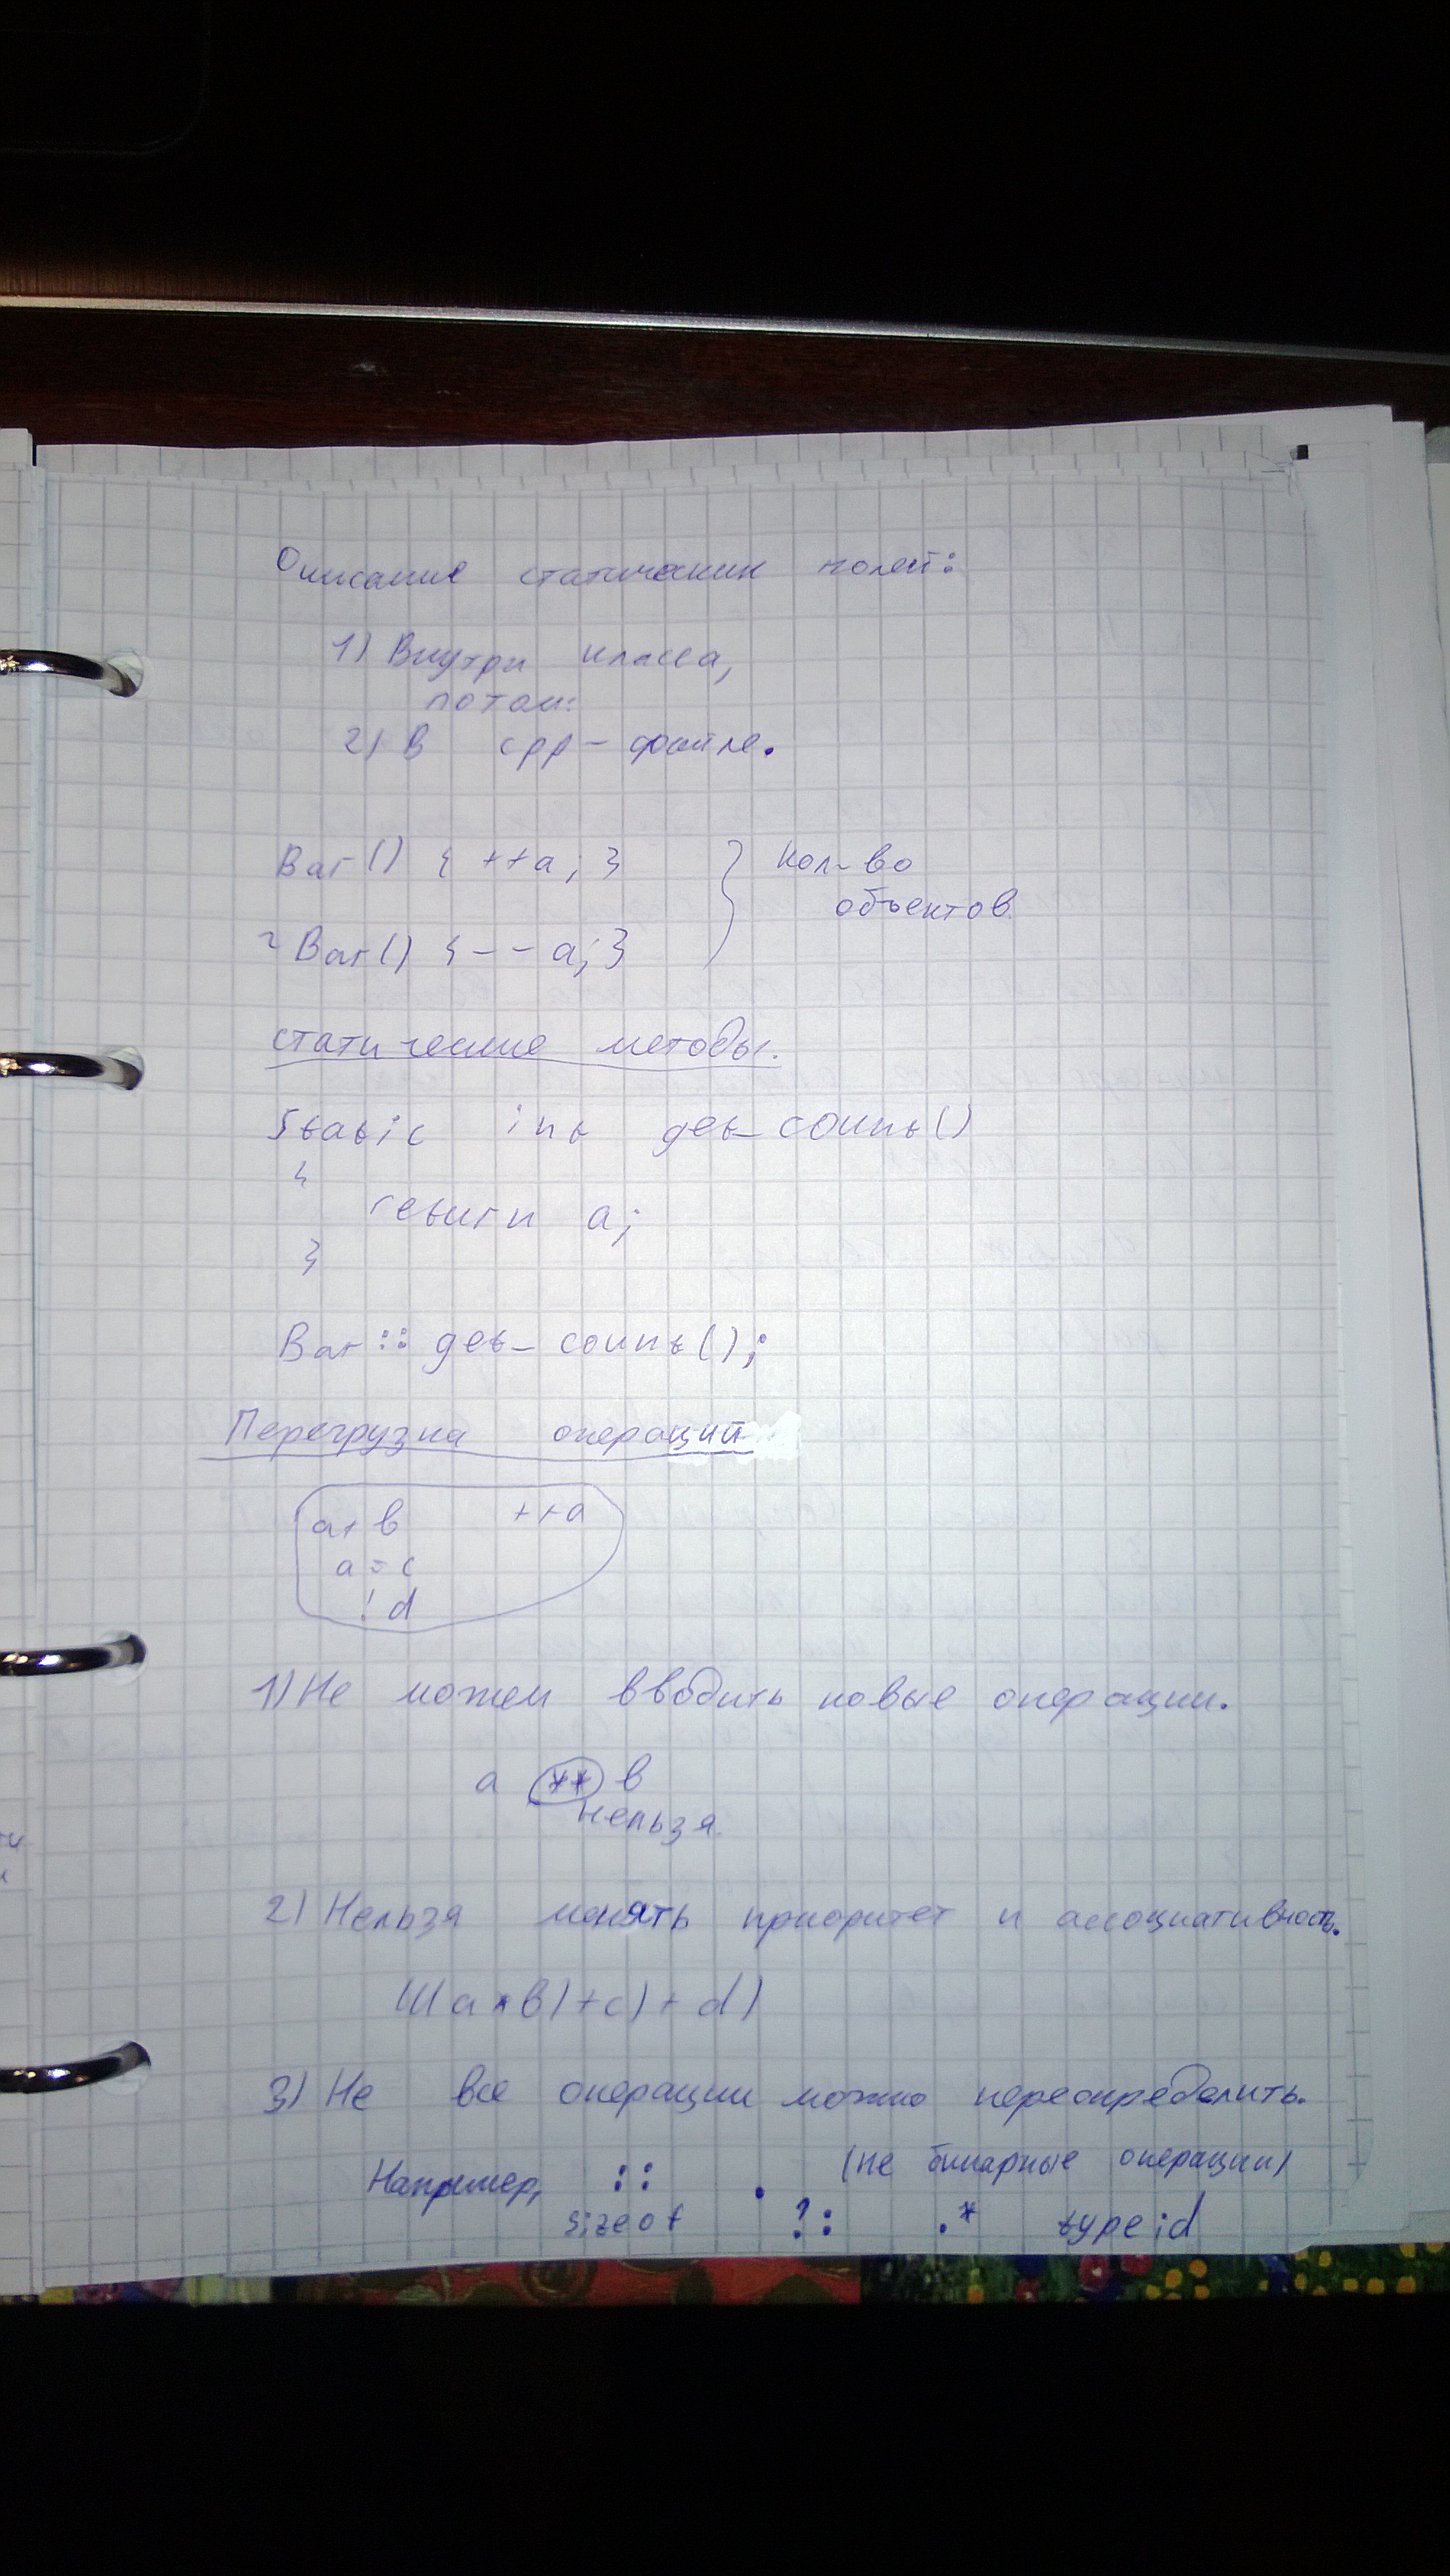 Описание статических полей:
1) Внутри класса,
потом:
2) В cpp-файле.
Bar() { ++a; } Кол-во
объектов
~Bar() { --a; }
статические методы.
Static int get_count()
{
return a;
}
Bar::get_count();
Перегрузка операций
a+b ++a
a=c
!d
1) Не можем вводить новые операции.
a ** b
нельзя
2) Нельзя менять приоритет и ассоциативность.
(((a*b)+c)+d)
3) Не все операции можно переопределить.
Например, :: . (не бинарные операции)
sizeof ?: .* typeid